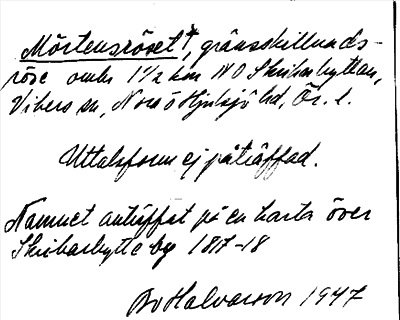 Mörtensröset†, gränsskillnads-
röse omkr 1½ km NO Skribarbyttan,
Vibers sn, Nora o Hjulsjö hd, Ör. l.
Uttalsform ej påträffad.
Namnet anträffat på en karta över
Skribarbytte by 1817-18
Bo Halvarson 1947